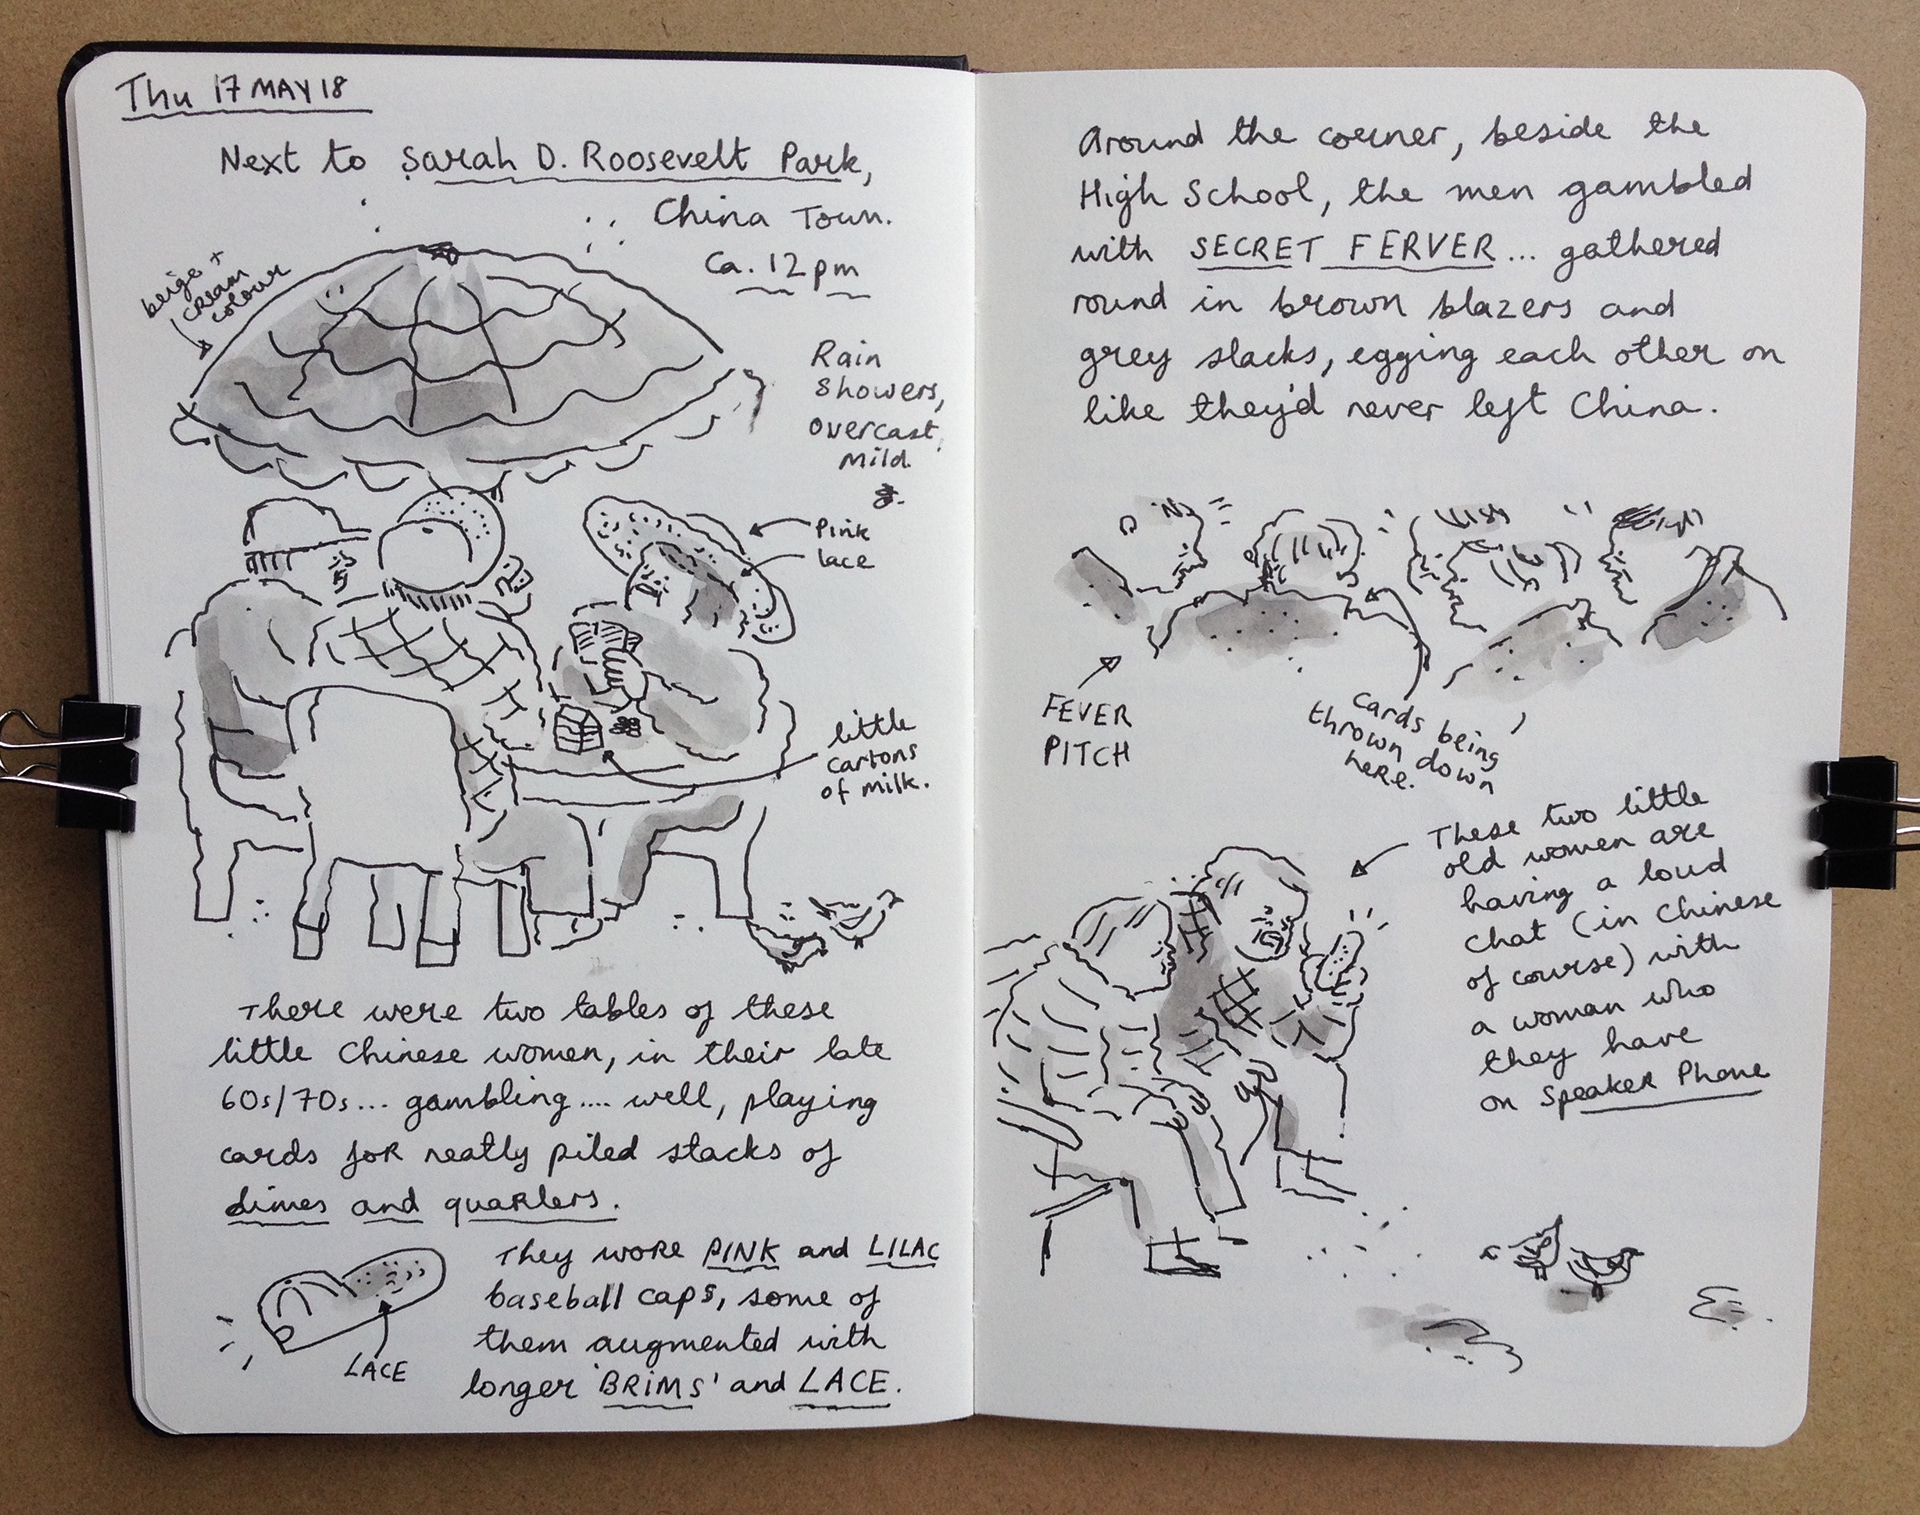 Thu 17 MAY 18
Next to Sarah D. Roosevelt Park,
China Town.
Ca. 12pm
beige +
cream
colour
Rain
Showers,
overcast,
mild.
Pink
lace
little
cartons
of milk.
There were two tables of these
little Chinese women, in their late
60s/70s... gambling.... well, playing
cards for neatly piled stacks of
dimes and quarters.
They wore PINK and LILAC
baseball caps, some of
them augmented with
longer 'BRIMS' and LACE.
LACE
Around the corner, beside the
High School, the men gambled
with SECRET FERVER... gathered
round in brown blazers and
grey slacks, egging each other on
like they'd never left China.
FEVER
PITCH
cards being
thrown down
here.
These two little
old women are
having a loud
chat (in Chinese
of course) with
a woman who
they have
on Speaker Phone